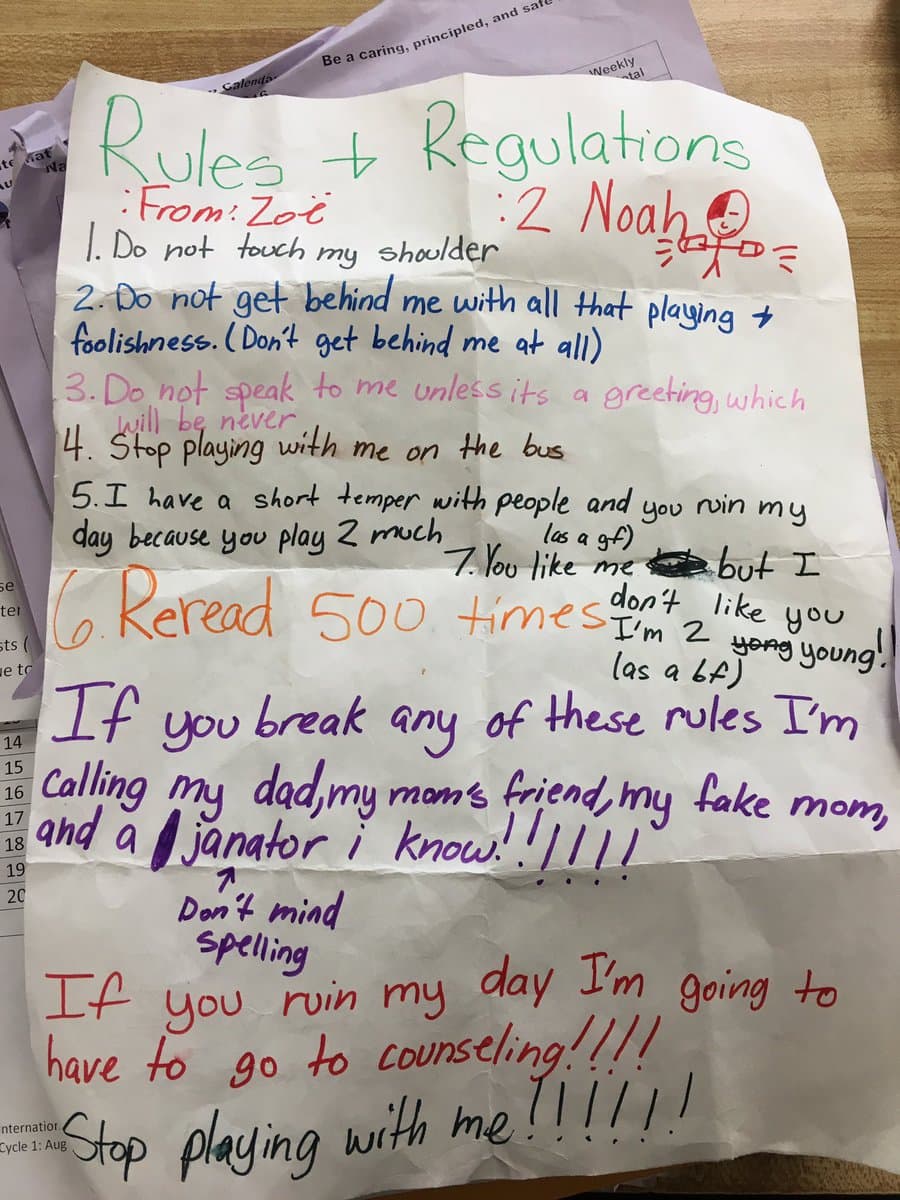 Be a caring, principled, and safe
Calendar
Weekly
Rules + Regulations
:From: Zoë :2 Noah
1. Do not touch my shoulder
2. Do not get behind me with all that playing +
foolishness. (Don't get behind me at all)
3. Do not speak to me unless its a greeting, which
will be never
4. Stop playing with me on the bus
5. I have a short temper with people and you ruin my
day because you play 2 much
6. Reread 500 times
(as a gf)
7. You like me but I
don't like you
I'm 2 yong young!!
(as a bf)
If you break any of these rules I'm
Calling my dad, my mom's friend, my fake mom,
and a janator i know!!!!!!
↑
Don't mind
spelling
If you ruin my day I'm going to
have to go to counseling!!!!
Stop playing with me!!!!!!
14
15
16
17
18
19
20
Cycle 1: Aug